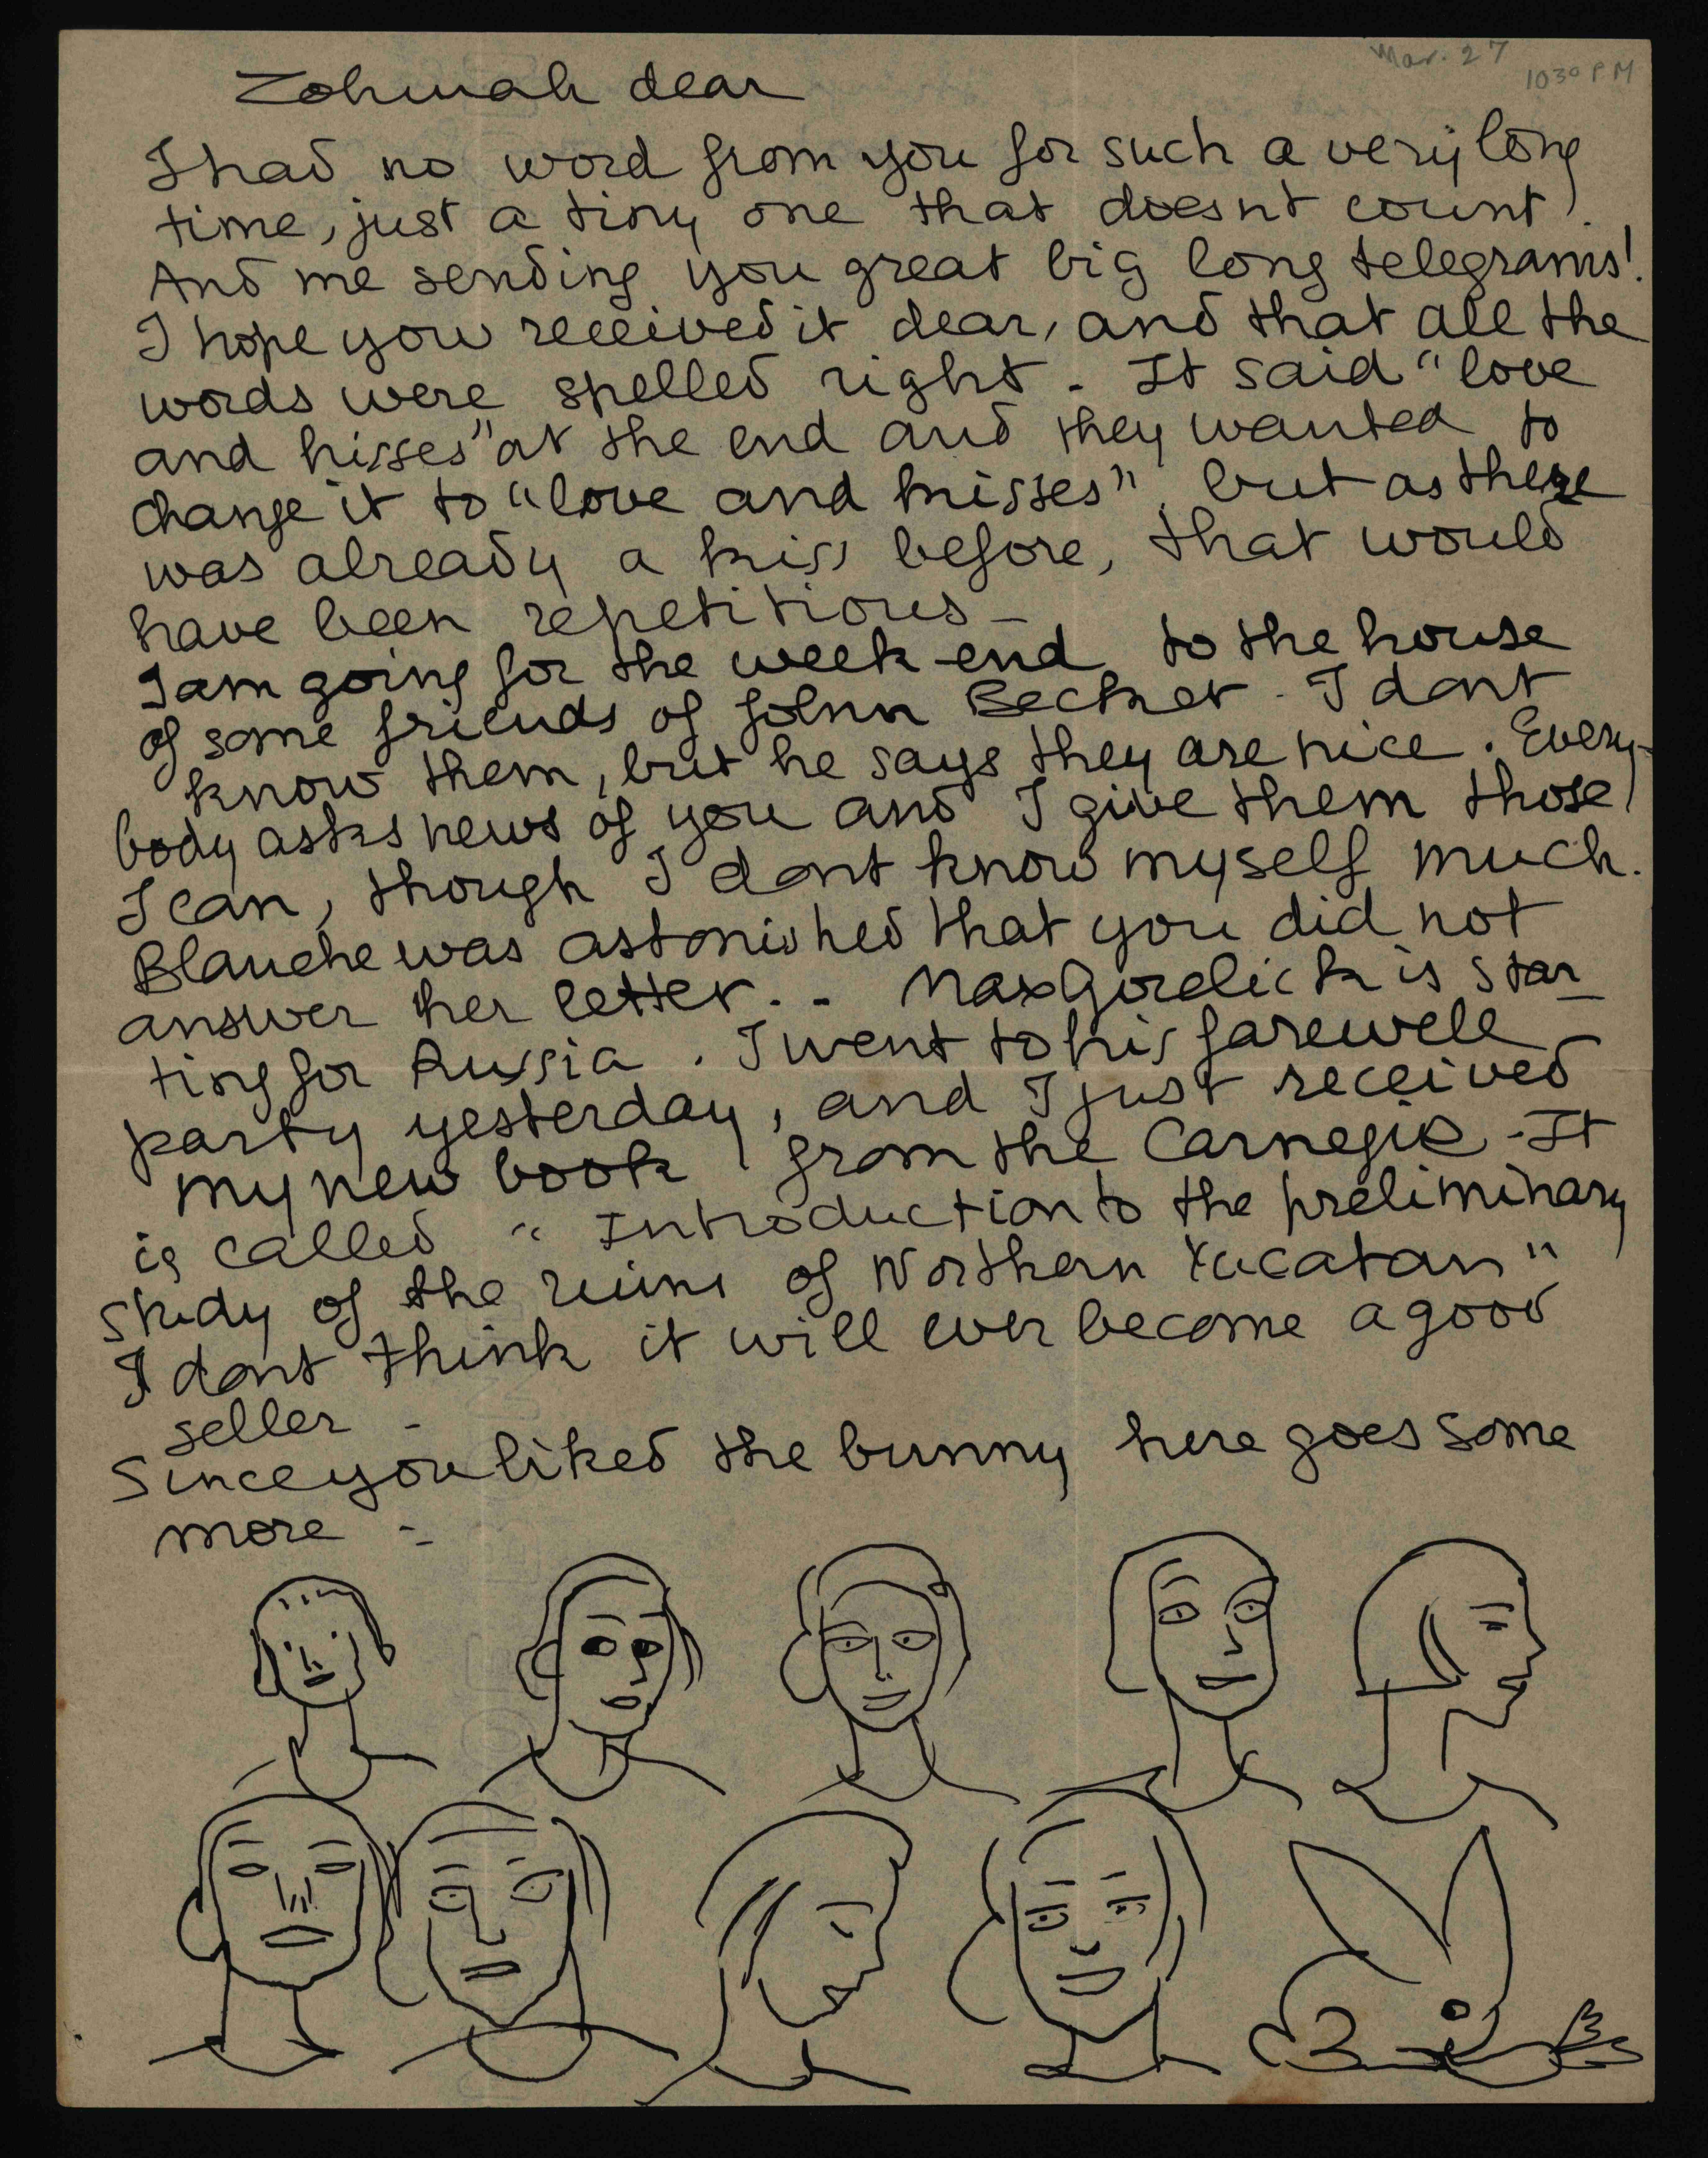 Mar. 27
1030 PM
Zohmah dear
I had no word from you for such a very long
time, just a tiny one that doesnt count!
And me sending you great big long telegrams!
I hope you received it dear, and that all the
words were spelled right - It said "love
and hisses" at the end and they wanted to
change it to "love and kisses", but as there
was already a kiss before, that would
have been repetitious -
I am going for the week-end to the house
of some friends of John Becker - I dont
know them, but he says they are nice. Every-
body asks news of you and I give them those
I can, though I dont know myself much.
Blanche was astonished that you did not
answer her letter.. - Max Gorelick is star_
ting for Russia. I went to his farewell
party yesterday, and I just received
my new book from the Carnegie - It
is called "Introduction to the preliminary
study of the ruins of Northern Yucatan"
I dont think it will ever become a good
seller -
Since you liked the bunny here goes some
more -